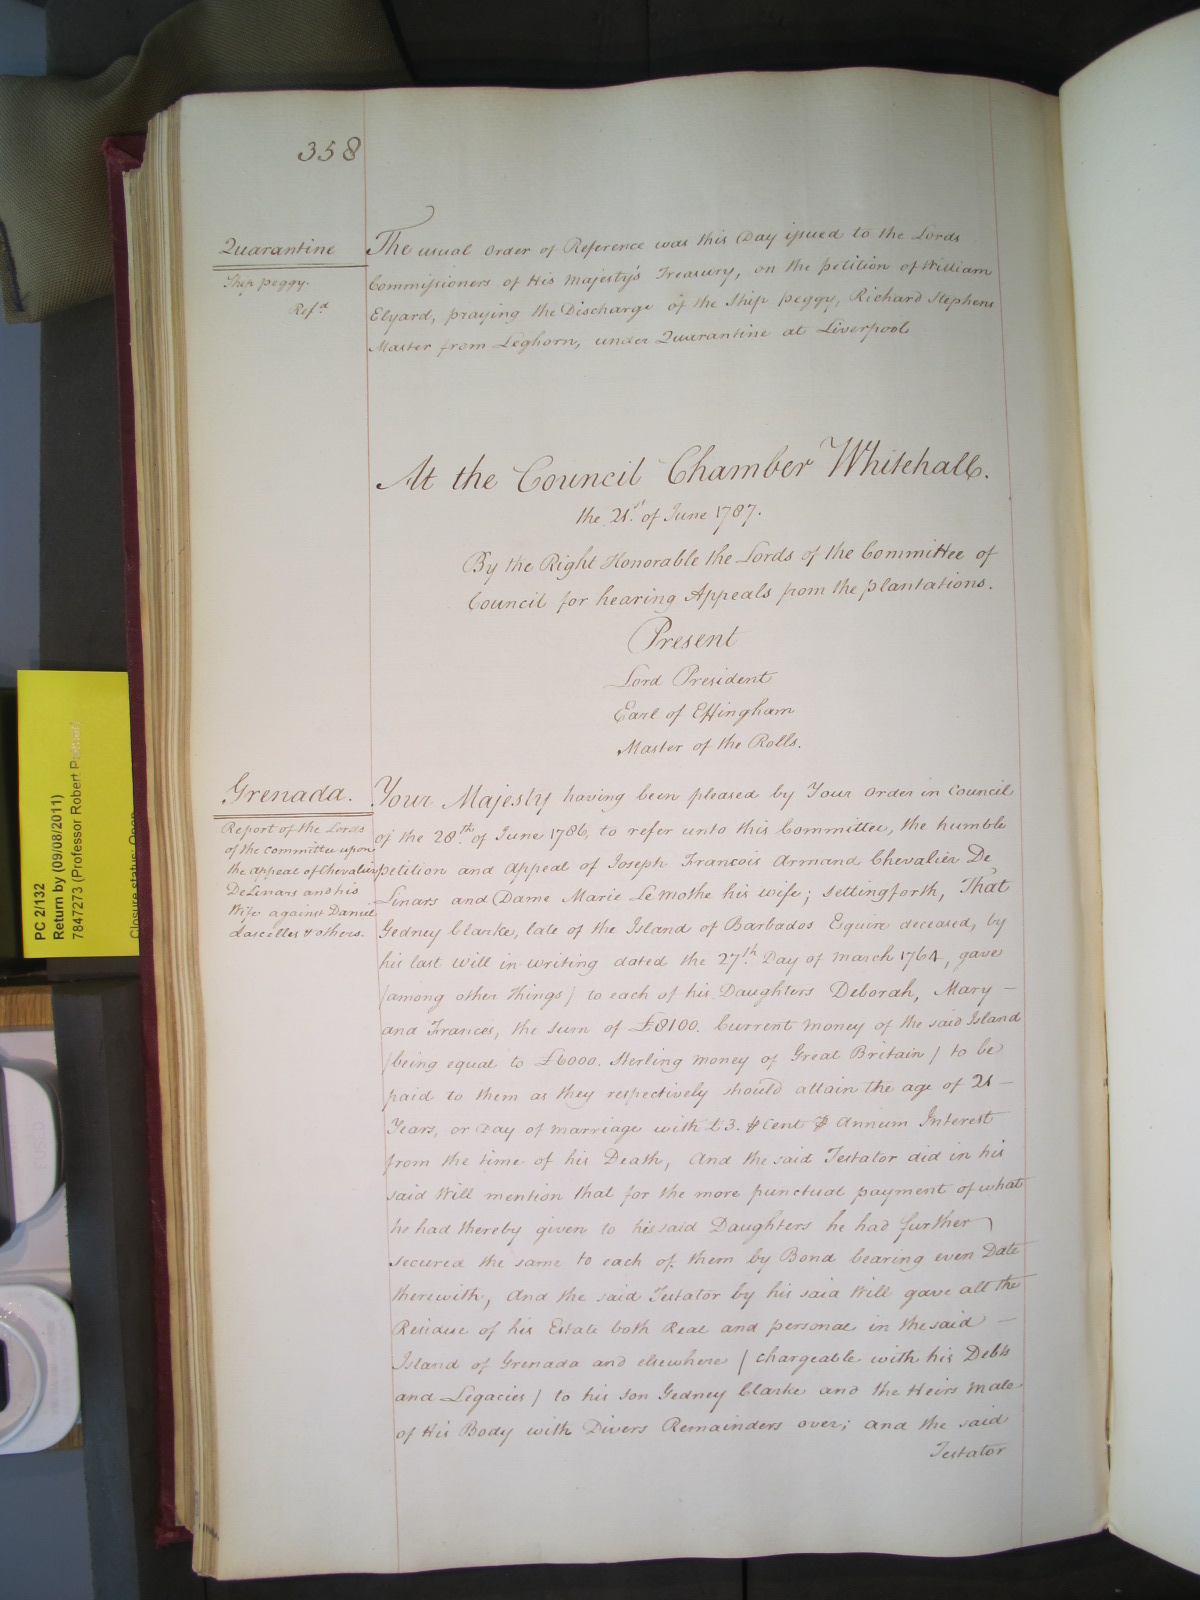 358
Quarantine
Ship Peggy.
Ref.d
The usual Order of Reference was this Day issued to the Lords
Commissioners of His Majesty's Treasury, on the petition of William
Elyard, praying the Discharge of the Ship Peggy, Richard Stephens
Master from Leghorn, under Quarantine at Liverpool
At the Council Chamber Whitehall.
the 21.st of June 1787.
By the Right Honorable the Lords of the Committee of
Council for hearing Appeals from the plantations.
Present
Lord President
Earl of Effingham
Master of the Rolls.
Grenada.
Report of the Lords
of the Committee upon
the appeal of Chevalier
De Linars and his
Wife against Daniel
Lascelles & others.
Your Majesty having been pleased by Your Order in Council
of the 28.th of June 1786, to refer unto this Committee, the humble
petition and Appeal of Joseph Francois Armand Chevalier De
Linars and Dame Marie Le Mothe his wife; setting forth, That
Gedney Clarke, late of the Island of Barbados Esquire deceased, by
his last Will in writing dated the 27.th Day of March 1764, gave
(among other things) to each of his Daughters Deborah, Mary —
and Frances, the sum of £8100. Current money of the said Island
(being equal to £6000. Sterling money of Great Britain) to be
paid to them as they respectively should attain the age of 21 —
Years, or Day of marriage with £3. ⅌ Cent ⅌ Annum Interest
from the time of his Death, And the said Testator did in his
said Will mention that for the more punctual payment of what
he had thereby given to his said Daughters he had further
secured the same to each of them by Bond bearing even Date
therewith, And the said Testator by his said Will gave all the
Residue of his Estate both Real and personal in the said —
Island of Grenada and elsewhere (chargeable with his Debts
and Legacies) to his Son Gedney Clarke and the Heirs Male
of His Body with Divers Remainders over; and the said
Testator
PC 2/132
Return by (09/08/2011)
7847273 (Professor Robert
Closure status: Open